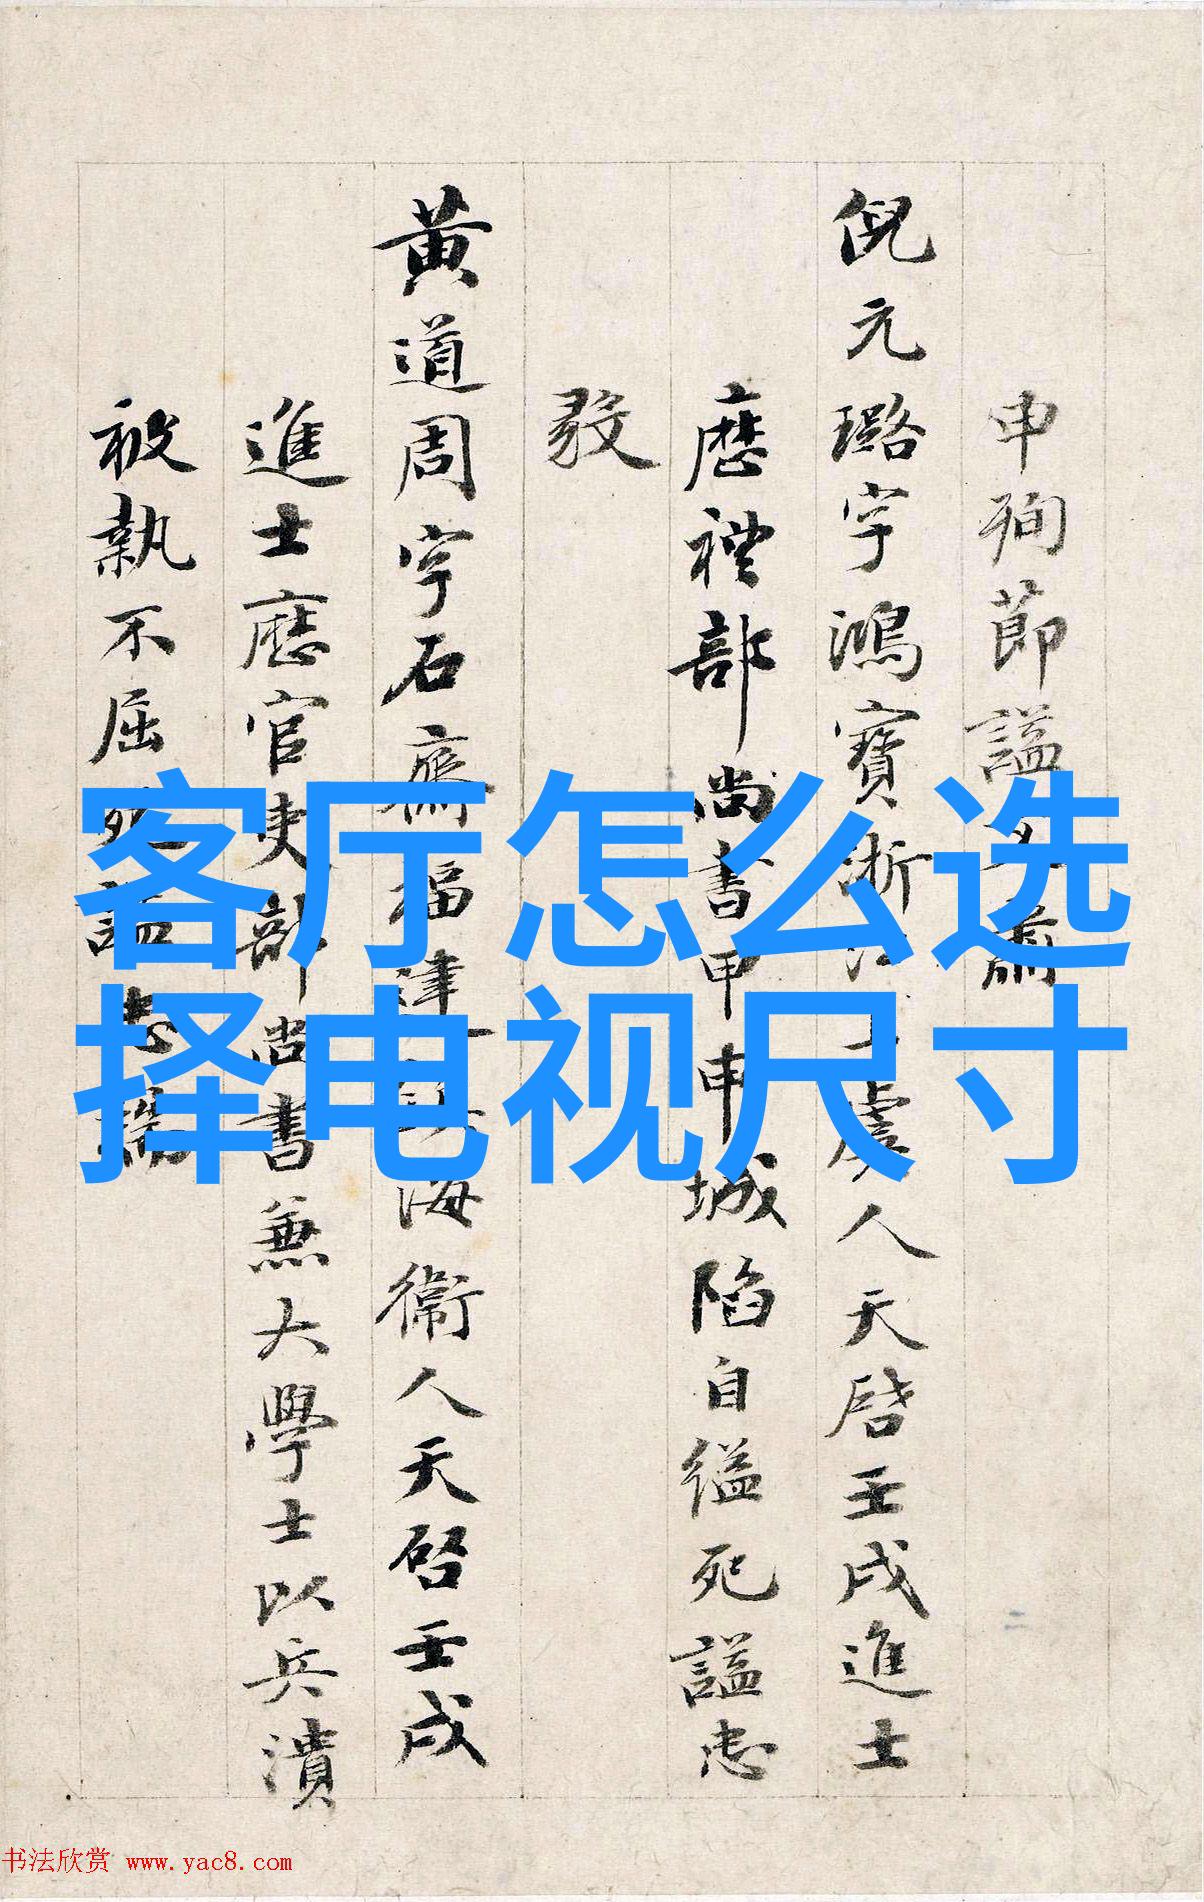 申殉節謚文肅
倪元璐字鴻寶浙江上虞人天啓壬戌進士
歷禮部尚書甲申城陷自縊死謚忠
毅
黄道周字石齋福建鎮海衛人天啓壬戌
進士歷官吏部尚書兼大學士以兵潰
被執不屈死謚忠端
客厅怎么选
择电视尺寸
书法欣赏 www.yac8.com